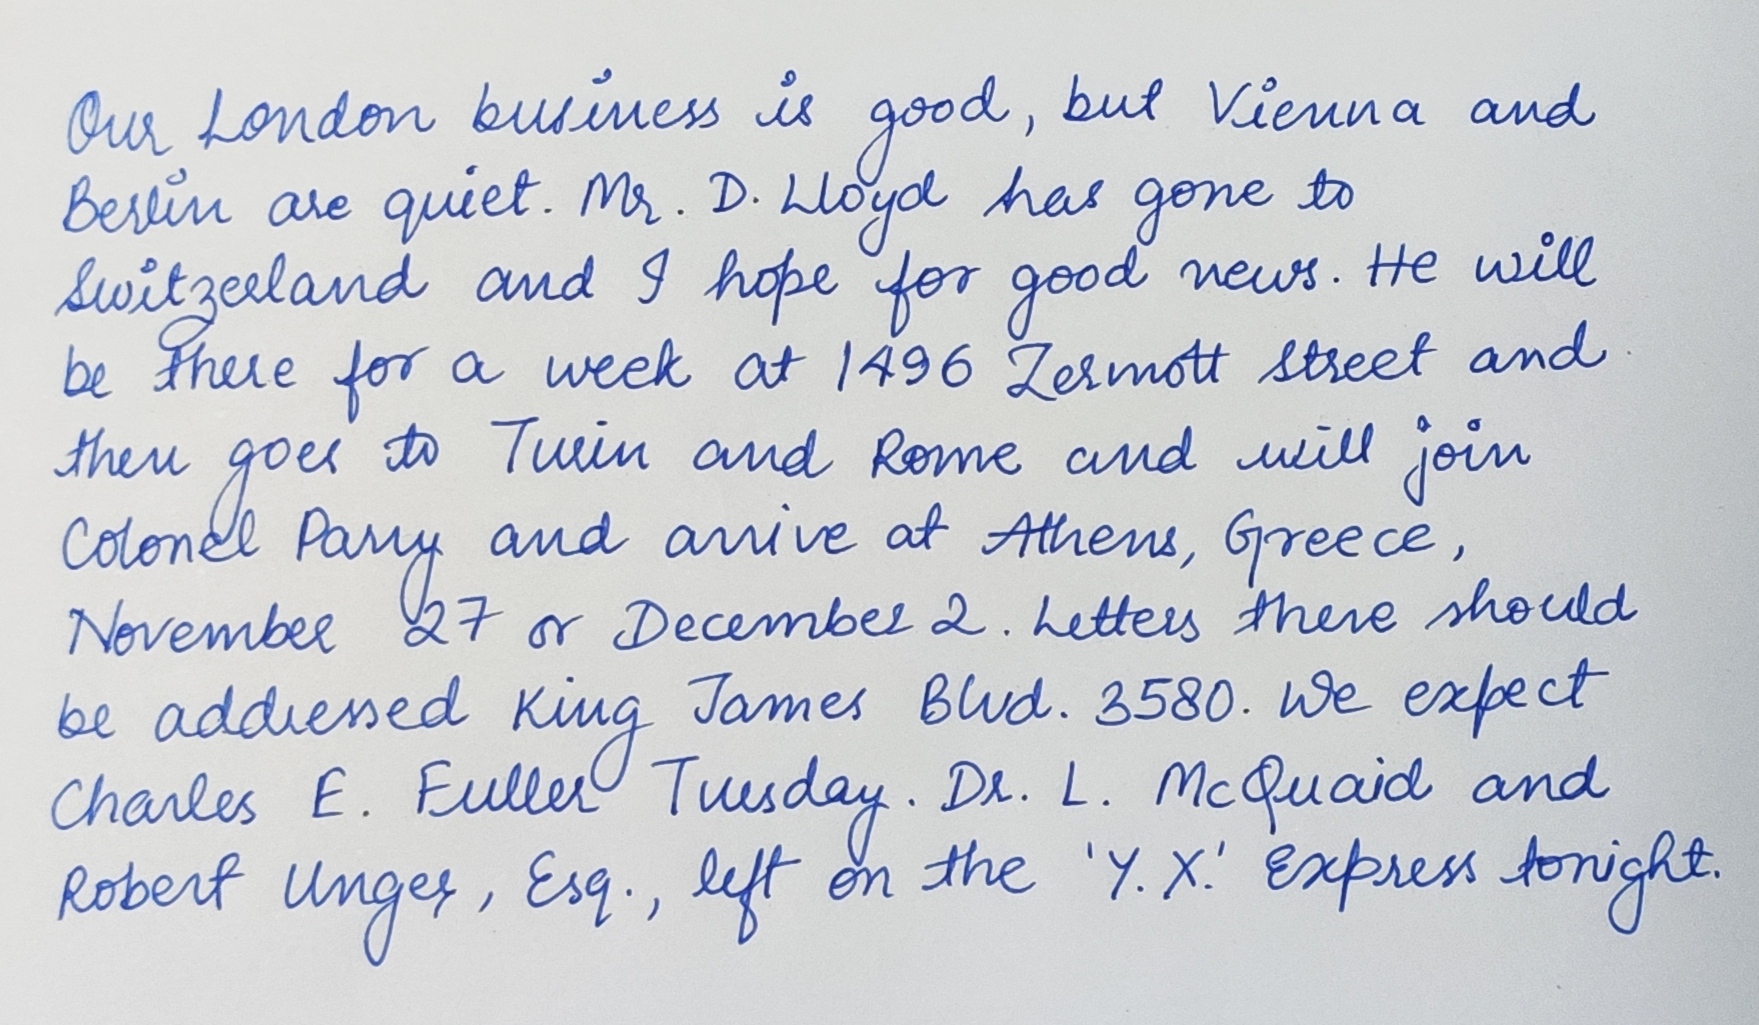 Our London business is good, but Vienna and
Berlin are quiet. Mr. D. Lloyd has gone to
Switzerland and I hope for good news. He will
be there for a week at 1496 Zermott Street and
then goes to Turin and Rome and will join
Colonel Parry and arrive at Athens, Greece,
November 27 or December 2. Letters there should
be addressed King James Blvd. 3580. We expect
Charles E. Fuller Tuesday. Dr. L. McQuaid and
Robert Unger, Esq., left on the 'Y.X.' Express tonight.